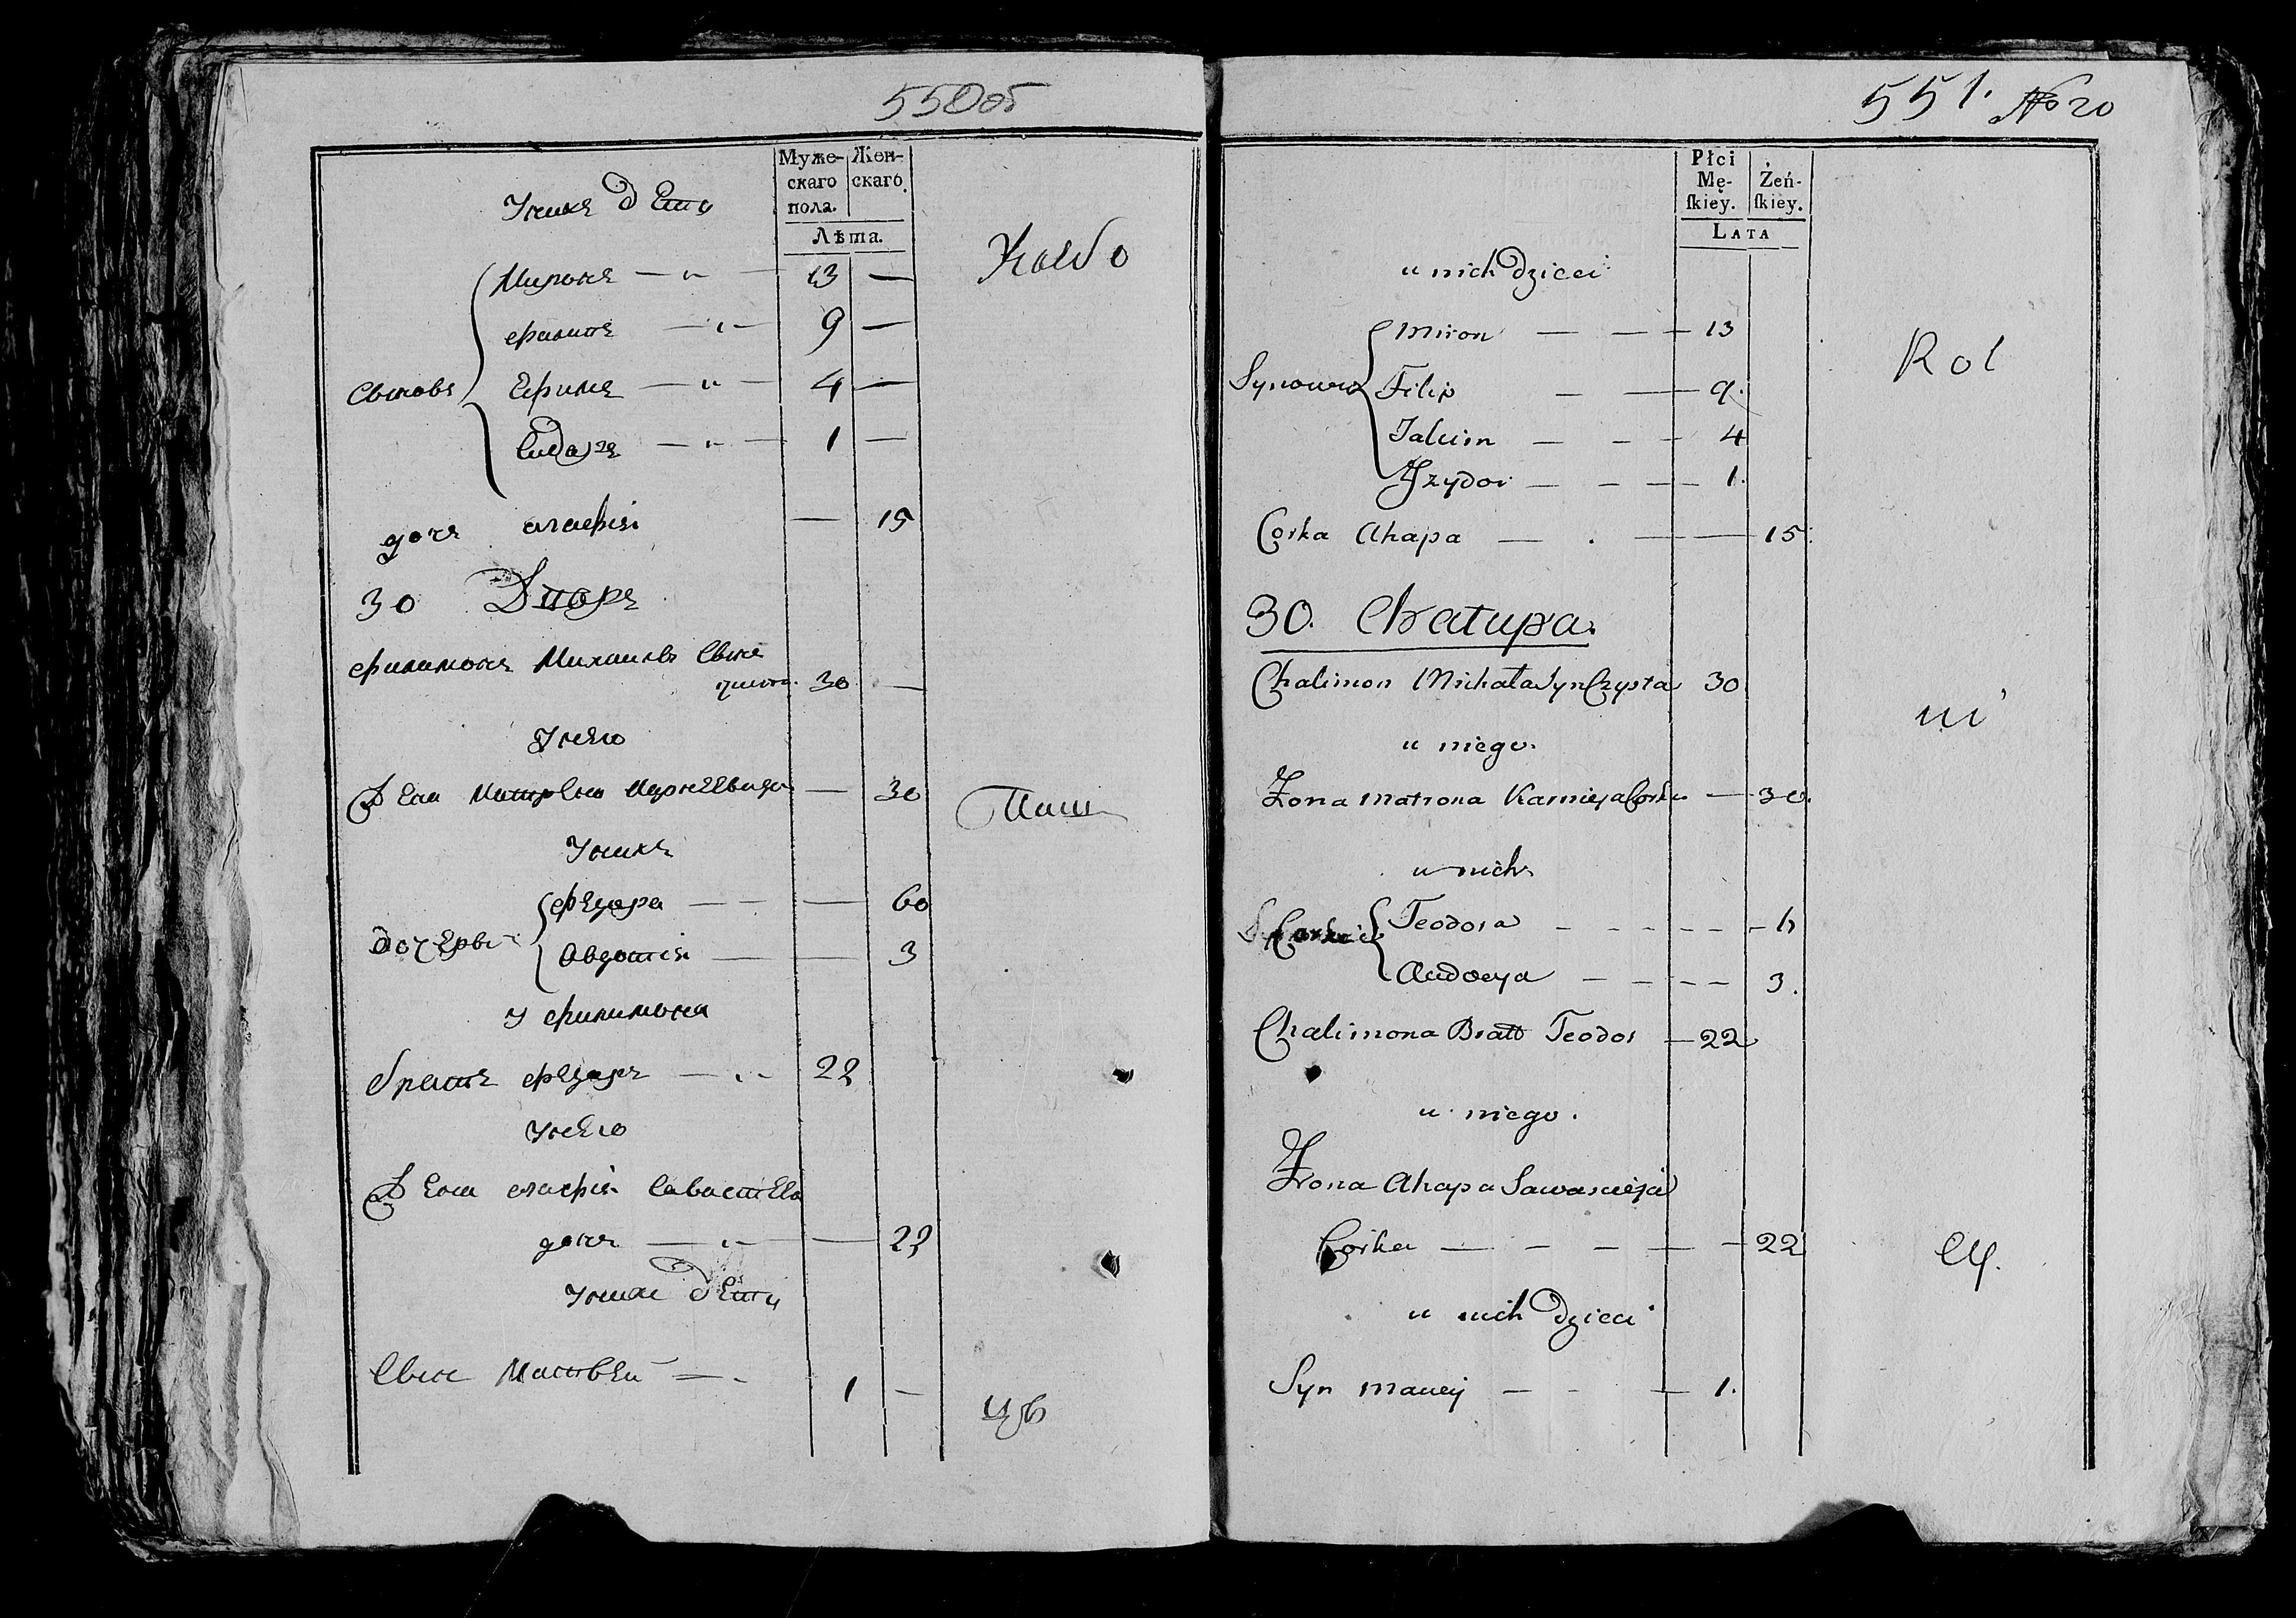 550об
Муже-
скаго
пола.
Жен-
скаго.
Лѣта.
Унихъ дети
Сынове
Миронъ — 13 —
Филипъ — 9 —
Ефимъ — 4 —
Сидаръ — 1 —
дочь агафія — 15
30 Дворъ
Филимонъ Михаиловъ Сынъ
чиста. 30 —
Унего
Жена Матрона — 30
Унихъ
дочери
Федора — — 60
Авдотія — — 3
У Филимона
братъ Федаръ — 22
Унего
Жена агафія Савастеева
дочь — — 22
Унихъ дети
Сынъ Матвей — 1 —
551. No 20
Płci
Mę-
ſkiey.
Żeń-
ſkiey.
LATA
u nich dzieci
Synowie
Miron — — 13
Filip — — 9.
— — 4
Jzydor — — — 1.
Corka Ahapa — — — 15
30. Chatupa.
Chalimon Michała Syn Czysta 30
u niego.
Żona Matrona Corka — 30.
u nich
Corki
Teodora — — — — 6
Audocya — — — — 3.
Chalimona Bratt Teodor — 22
u niego.
Żona Ahapa
Corka — — — — 22
u nich dzieci
Syn Maciej — — — 1.
Rol
ni